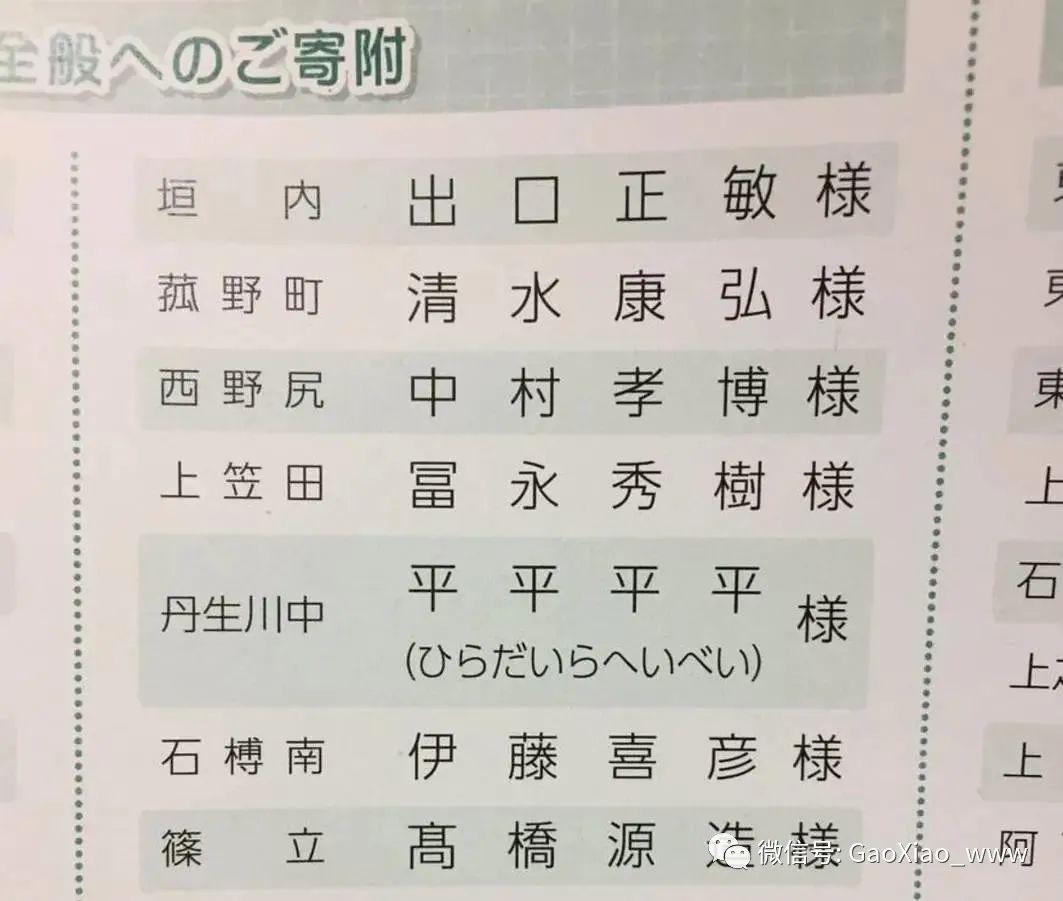 全般へのご寄附
垣内 出口正敏様
菰野町 清水康弘様
西野尻 中村孝博様
上笠田 冨永秀樹様
丹生川中 平平平平様
(ひらだいらへいべい)
石榑南 伊藤喜彦様
篠立 髙橋源造様
微信号: GaoXiao_www
東
上
石
上
上
阿